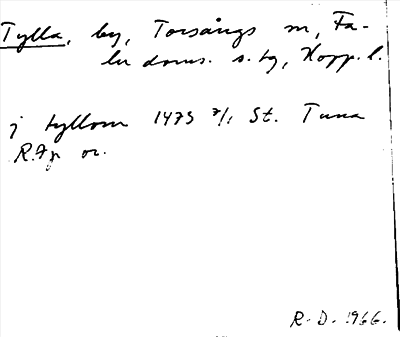 Tylla, by, Torsångs sn, Fa-
lu doms. s. tg, Kopp. l.
j tyllom 1475 7/1 St. Tuna
R.Ap or.
R. D. 1966.